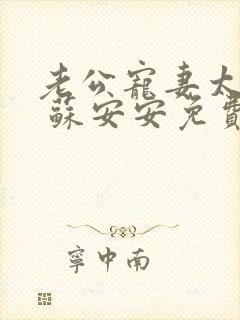 老公寵妻太
蘇安安免費
寧中南